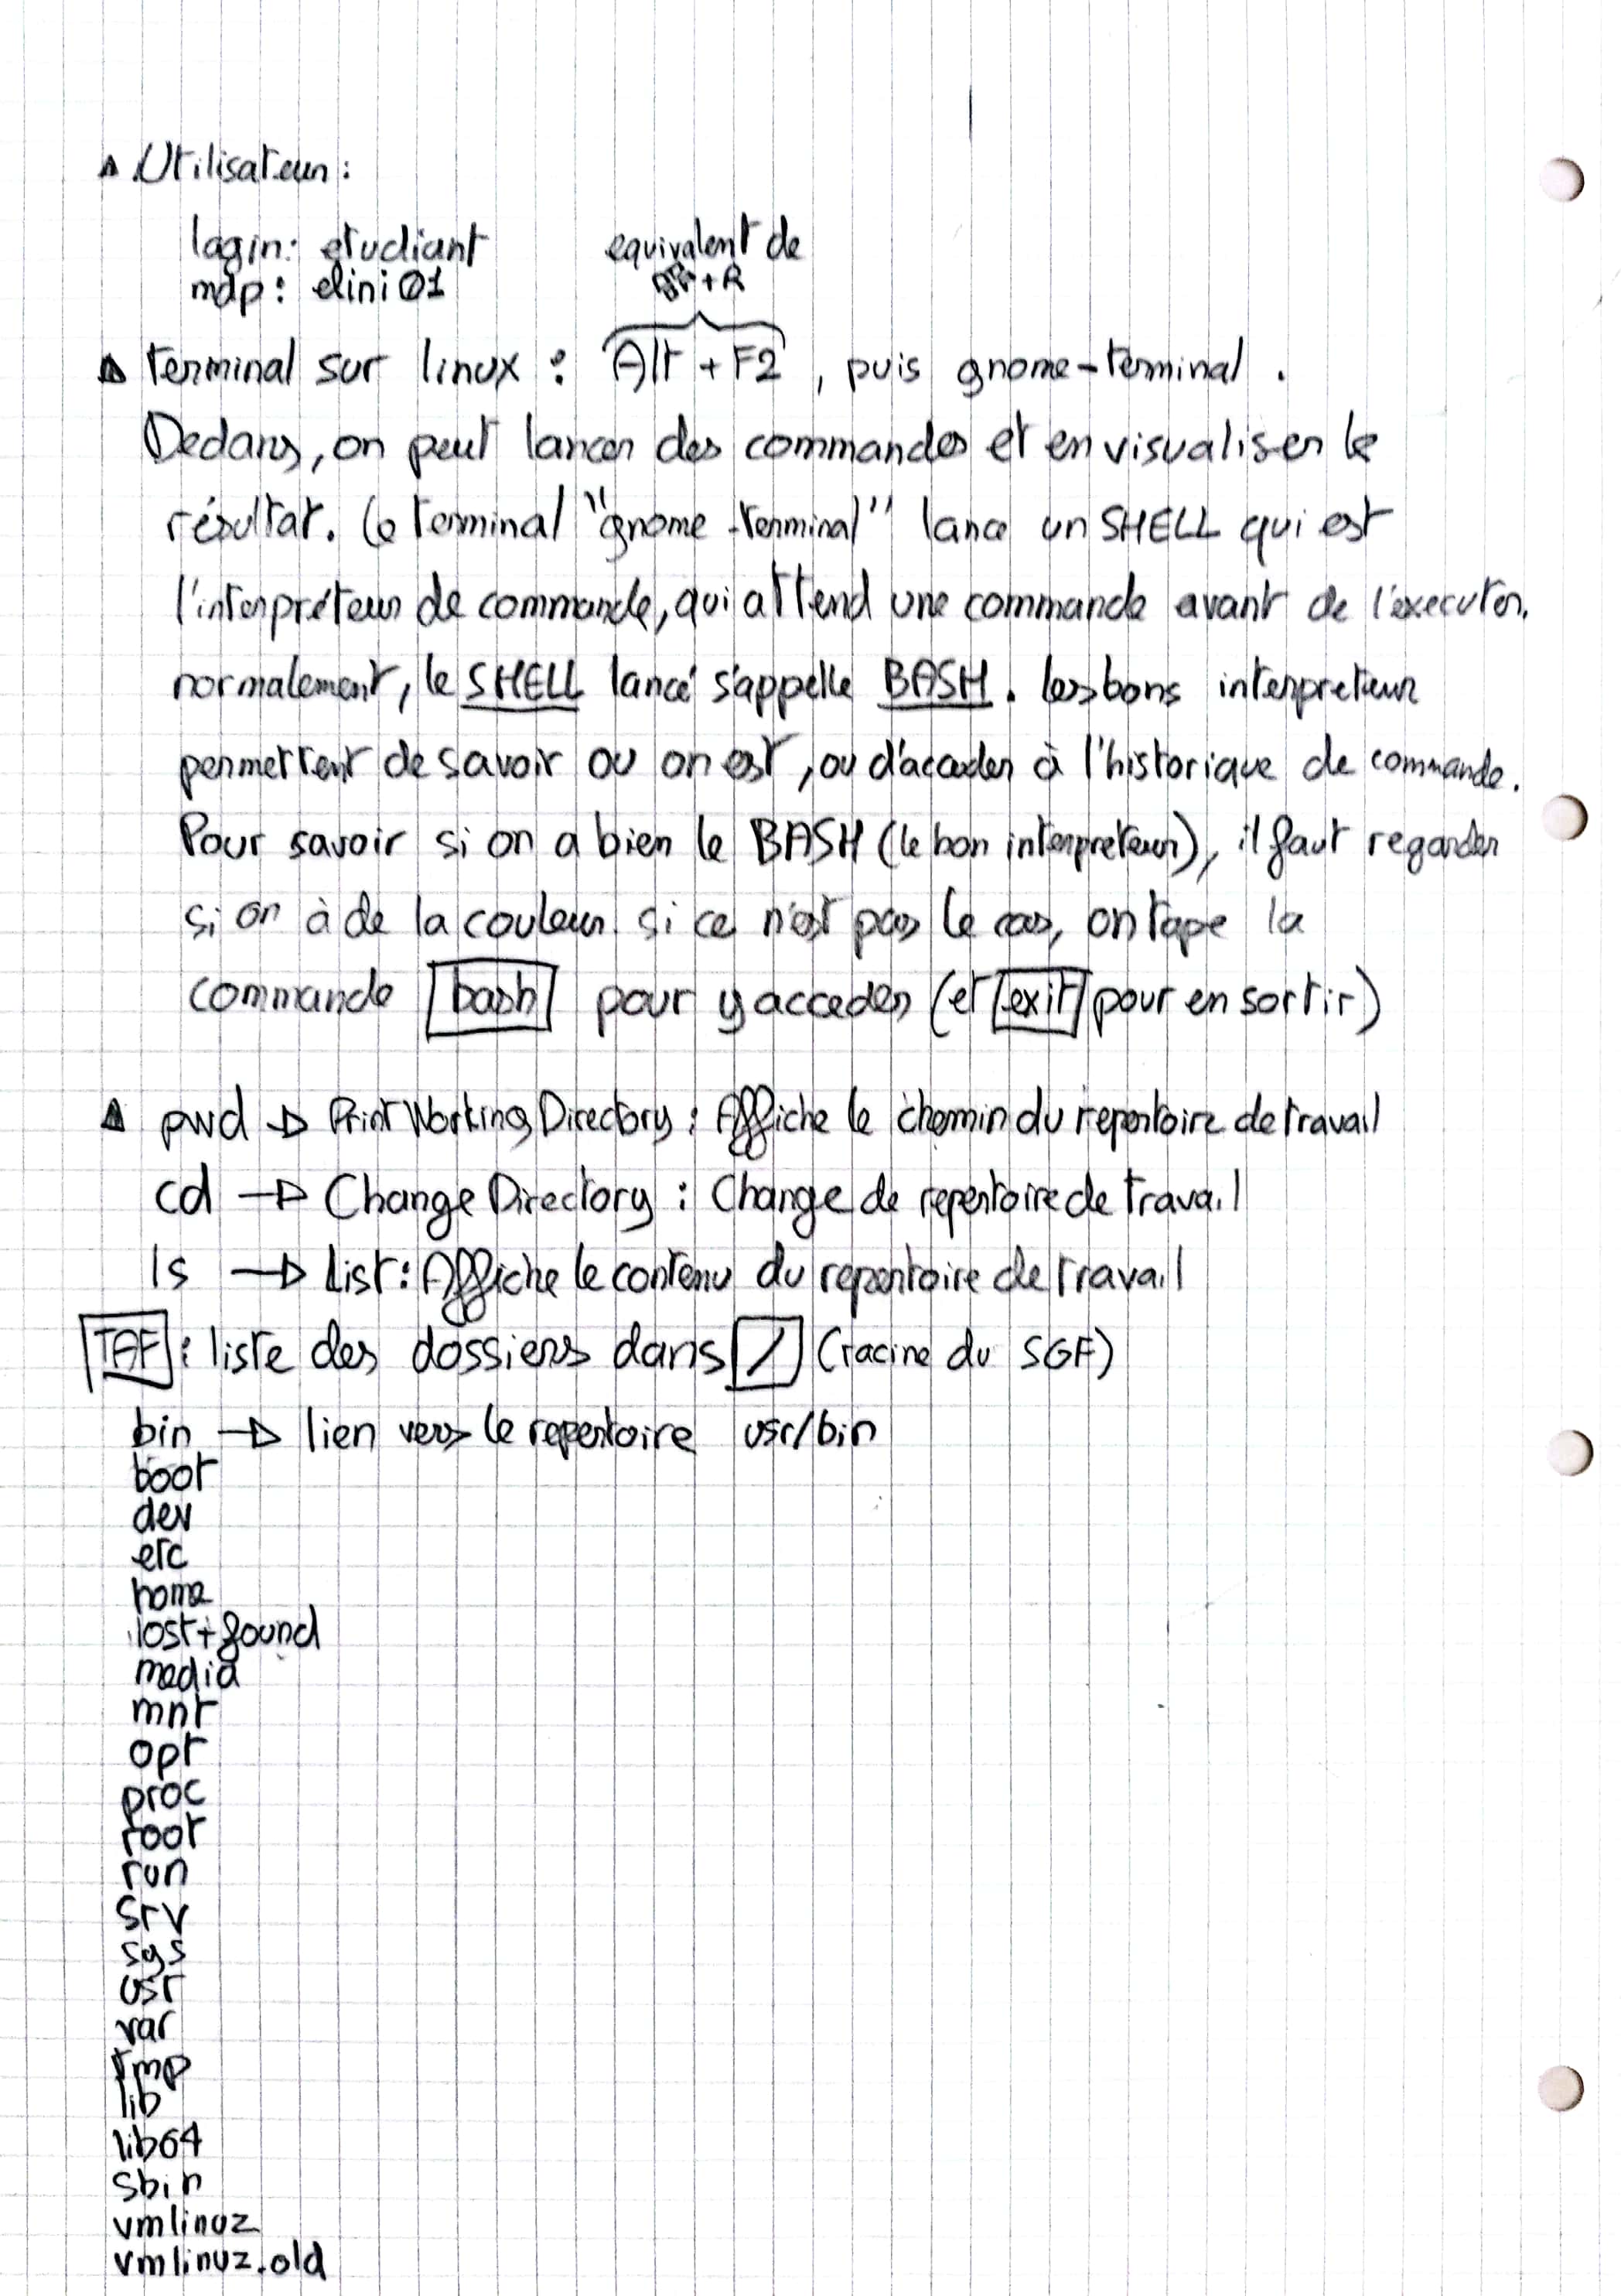 Utilisateur :
login : etudiant
mdp : elini01
equivalent de
+ R
terminal sur linux : Alt + F2 , puis gnome-terminal .
Dedans, on peut lancer des commandes et en visualiser le
résultat. Le terminal "gnome-terminal" lance un SHELL qui est
l'interpréteur de commande, qui attend une commande avant de l'executer.
normalement, le SHELL lancé s'appelle BASH . Les bons interpreteur
permettent de savoir ou on est, ou d'acceder à l'historique de commande.
Pour savoir si on a bien le BASH (le bon interpreteur), il faut regarder
si on à de la couleur. si ce n'est pas le cas, on tape la
commande bash pour y acceder (et exit pour en sortir)
pwd → Print Working Directory : Affiche le chemin du repertoire de travail
cd → Change Directory : Change de repertoire de travail
ls → List : Affiche le contenu du repertoire de travail
TAF : liste des dossiers dans / (racine du SGF)
bin → lien vers le repertoire usr/bin
boot
dev
etc
home
lost+found
media
mnt
opt
proc
root
run
srv
sys
usr
var
tmp
lib
lib64
sbin
vmlinuz
vmlinuz.old